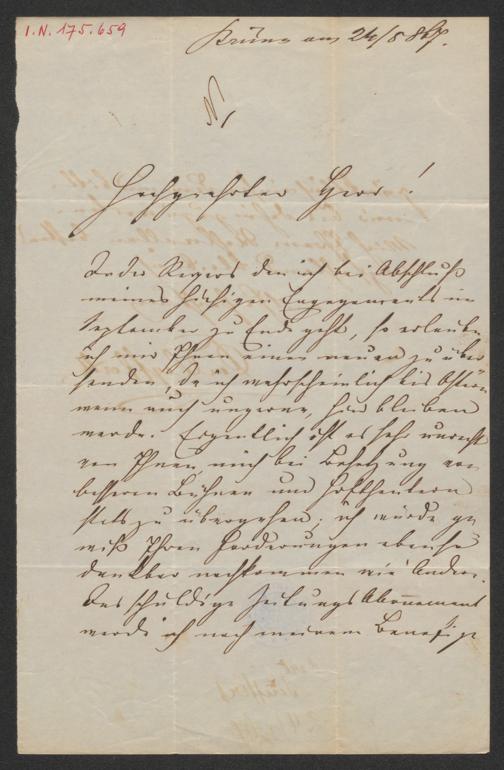 I.N. 175.659
Brünn am 24/8 867.
Hochgeehrter Herr!
Da der Revers den ich bei Abschluß
meines hiesigen Engagements im
September zu Ende geht, so erlaube
ich mir Ihnen einen neuen zu über
senden, da ich wahrscheinlich bis Ostern
wenn auch ungerne, hier bleiben
werde. Eigentlich ist es sehr unrecht
von Ihnen, mich bei Besetzung von
besseren Bühnen und Hoftheatern
stets zu übergehen; ich würde ge
wiß Ihren Forderungen ebenso
dankbar nachkommen wie Andere.
Das schuldige Zeitungs Abonnement
werde ich nach meinem Benefize